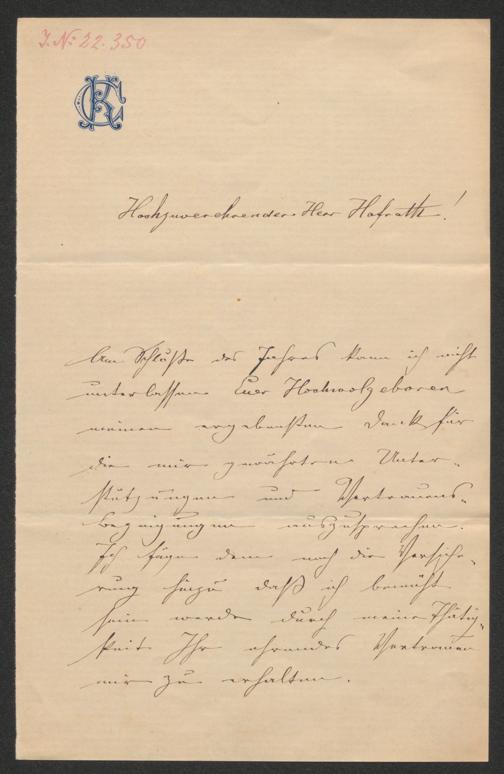 J. № 22.350
CK
Hochzuverehrender Herr Hofrath!
Am Schluße des Jahres kann ich nicht
unterlassen Euer Hochwolgeboren
meinen ergebensten Dank für
die mir gewährten Unter-
stützungen und Vertrauens-
bezeigungen auszusprechen.
Ich füge dem noch die Versiche-
rung hinzu daß ich bemüht
sein werde durch meine Thätig-
keit Ihr ehrendes Vertrauen
mir zu erhalten.